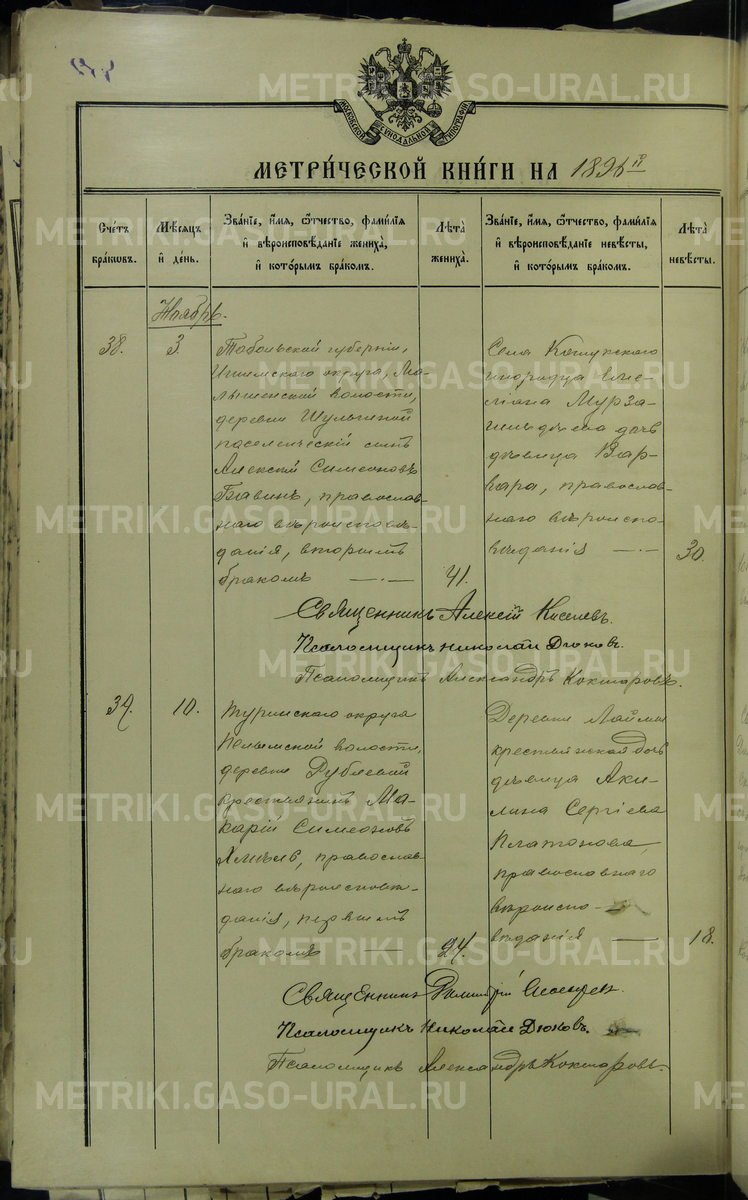 МОСКОВСКОЙ СѴНОДАЛЬНОЙ ТИПОГРАФІИ
МЕТРИ́ЧЕСКОЙ КНИ́ГИ НА 1896 й
Сче́тъ бра́ковъ.
Мѣ́сяцъ и҆ де́нь.
Зва́нїе, и҆́мѧ, ѻ҆́тчество, фами́лїѧ
и҆ вѣроисповѣ́данїе жениха̀,
и҆ кото́рымъ бра́комъ.
Лѣта̀ жениха̀.
Зва́нїе, и҆́мѧ, ѻ҆́тчество, фами́лїѧ
и҆ вѣроисповѣ́данїе невѣ́сты,
и҆ кото́рымъ бра́комъ.
Лѣта̀ невѣ́сты.
Ноябрь.
38.
3.
Тобольской губерніи,
Ишимскаго округа, Ма-
лышенской волости,
деревни Шулыгиной
поселенческій сынъ
Алексѣй Симеоновъ
православ-
наго вѣроисповѣ-
данія, вторымъ
бракомъ —·—
41.
Села Кошукскаго
инородца
дочь
дѣвица Вар-
вара, православ-
наго вѣроиспо-
вѣданія —·—
30.
Священникъ Алексій Киселевъ.
Псаломщикъ Николай Дюковъ.
Псаломщикъ Александръ Кокшаровъ.
39.
10.
Туринскаго округа
Пелымской волости,
деревни
крестьянинъ Ма-
карій Симеоновъ
православ-
наго вѣроисповѣ-
данія, первымъ
бракомъ —
24.
Деревни
крестьянская дочь
дѣвица Аки-
лина Сергіева
Платонова,
православнаго
вѣроиспо-
вѣданія —
18.
Священникъ Димитрій
Псаломщикъ Николай Дюковъ.
Псаломщикъ Александръ Кокшаровъ.
METRIKI.GASO-URAL.RU